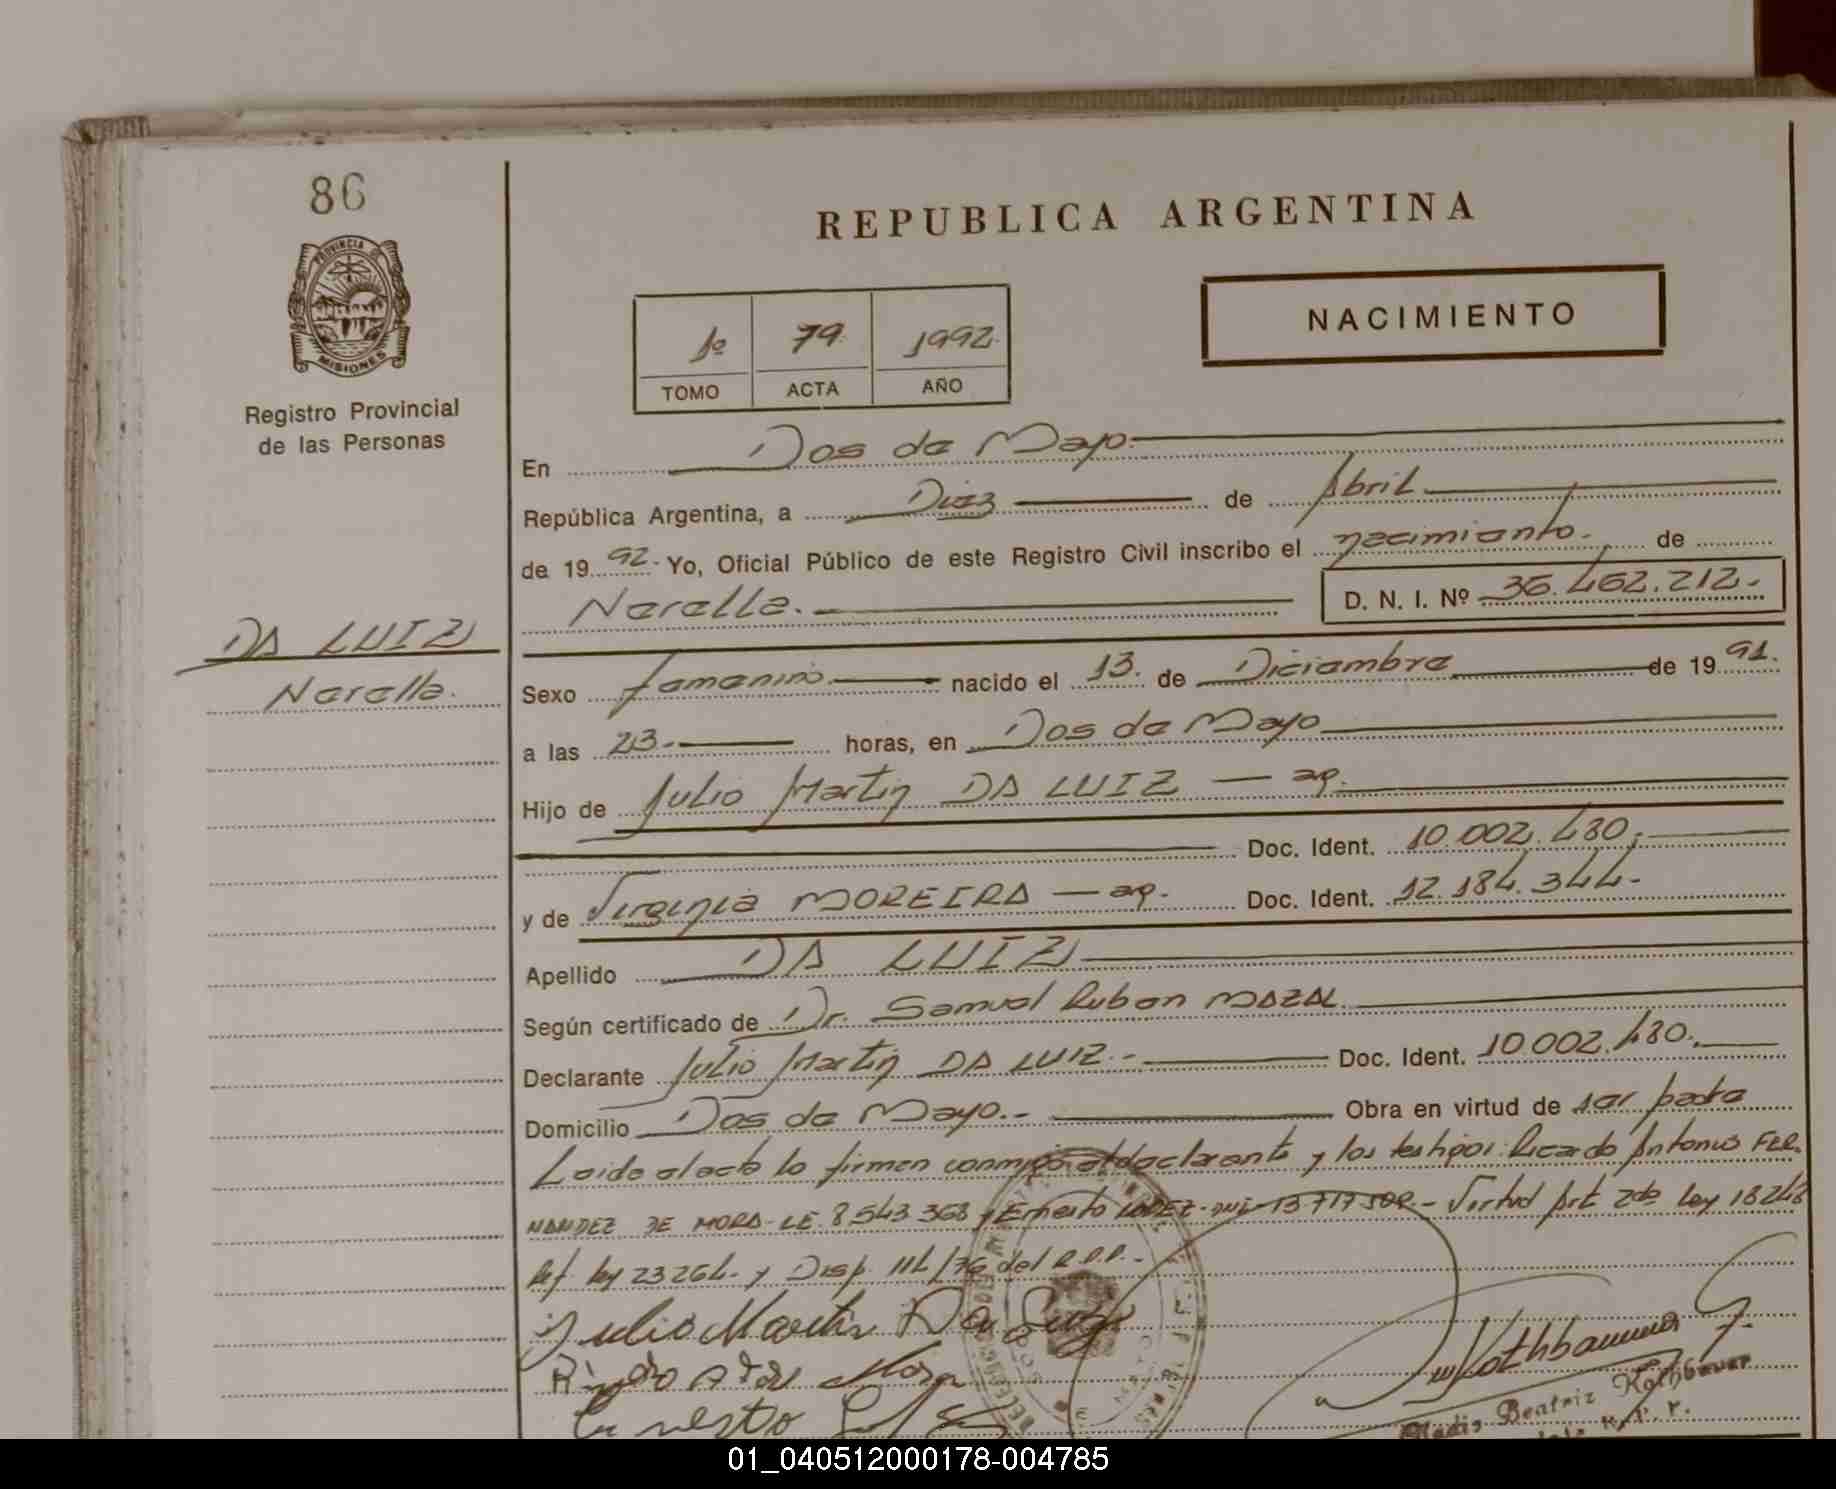 86
PROVINCIA DE
MISIONES
Registro Provincial
de las Personas
DA LUIZ
Narella.
REPUBLICA ARGENTINA
NACIMIENTO
1º 79. 1992.
TOMO ACTA AÑO
En Dos de Mayo.
República Argentina, a Diez de Abril
de 19 92. Yo, Oficial Público de este Registro Civil inscribo el nacimiento. de
Narella. D. N. I. Nº 36.462.212.-
Sexo femenino. nacido el 13. de Diciembre de 19 91.
a las 23.- horas, en Dos de Mayo
Hijo de Julio Martin DA LUIZ — ap.
Doc. Ident. 10.002.480.-
y de Virginia MOREIRA — ap. Doc. Ident. 12.184.344.-
Apellido DA LUIZ
Según certificado de Dr. Samuel Ruben MAZAL
Declarante Julio Martin DA LUIZ.- Doc. Ident. 10.002.480.-
Domicilio Dos de Mayo.- Obra en virtud de ser padre
Leida el acta la firman conmigo el declarante y los testigos: Ricardo Antonio FER-
NANDEZ DE MORA- LE 8543368 y Ernesto LOPEZ- DNI 13717509 - Virtud Art 2do ley 18248
Ref. ley 23264- y Disp. 114/76 del R.P.P.-
Julio Martin Da Luiz
Mora
Ernesto
Rothbauer G.
Gladis Beatriz Rothbauer
01_040512000178-004785